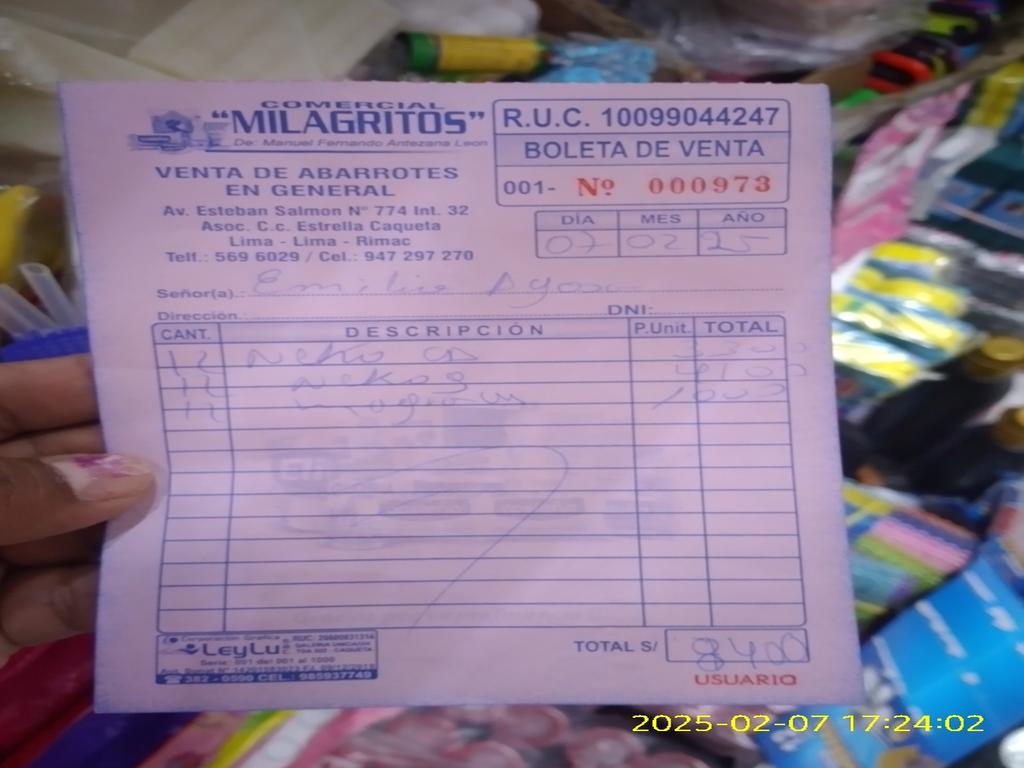 COMERCIAL
"MILAGRITOS"
De: Manuel Fernando Antezana Leon
VENTA DE ABARROTES
EN GENERAL
Av. Esteban Salmon N° 774 Int. 32
Asoc. C.c. Estrella Caqueta
Lima - Lima - Rimac
Telf.: 569 6029 / Cel.: 947 297 270
R.U.C. 10099044247
BOLETA DE VENTA
001- Nº 000973
DÍA MES AÑO
07 02 25
Señor(a).: Emilio
Dirección.: DNI:
CANT. DESCRIPCIÓN P.Unit. TOTAL
12 Neko 3300
12 Nekos 4100
12 1000
Corporación Grafica RUC: 20600831314
LeyLu
Serie: 001 del 001 al 1000
382 - 0590 CEL.: 985937749
TOTAL S/ 8400
USUARIO
2025-02-07 17:24:02